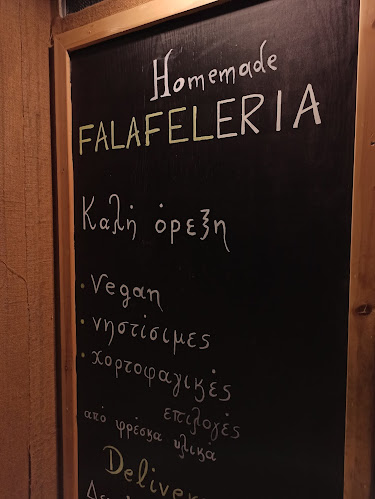 Homemade
FALAFELERIA
Καλή όρεξη
• Vegan
• νηστίσιμες
• χορτοφαγικές
επιλογές
από φρέσκα υλικά